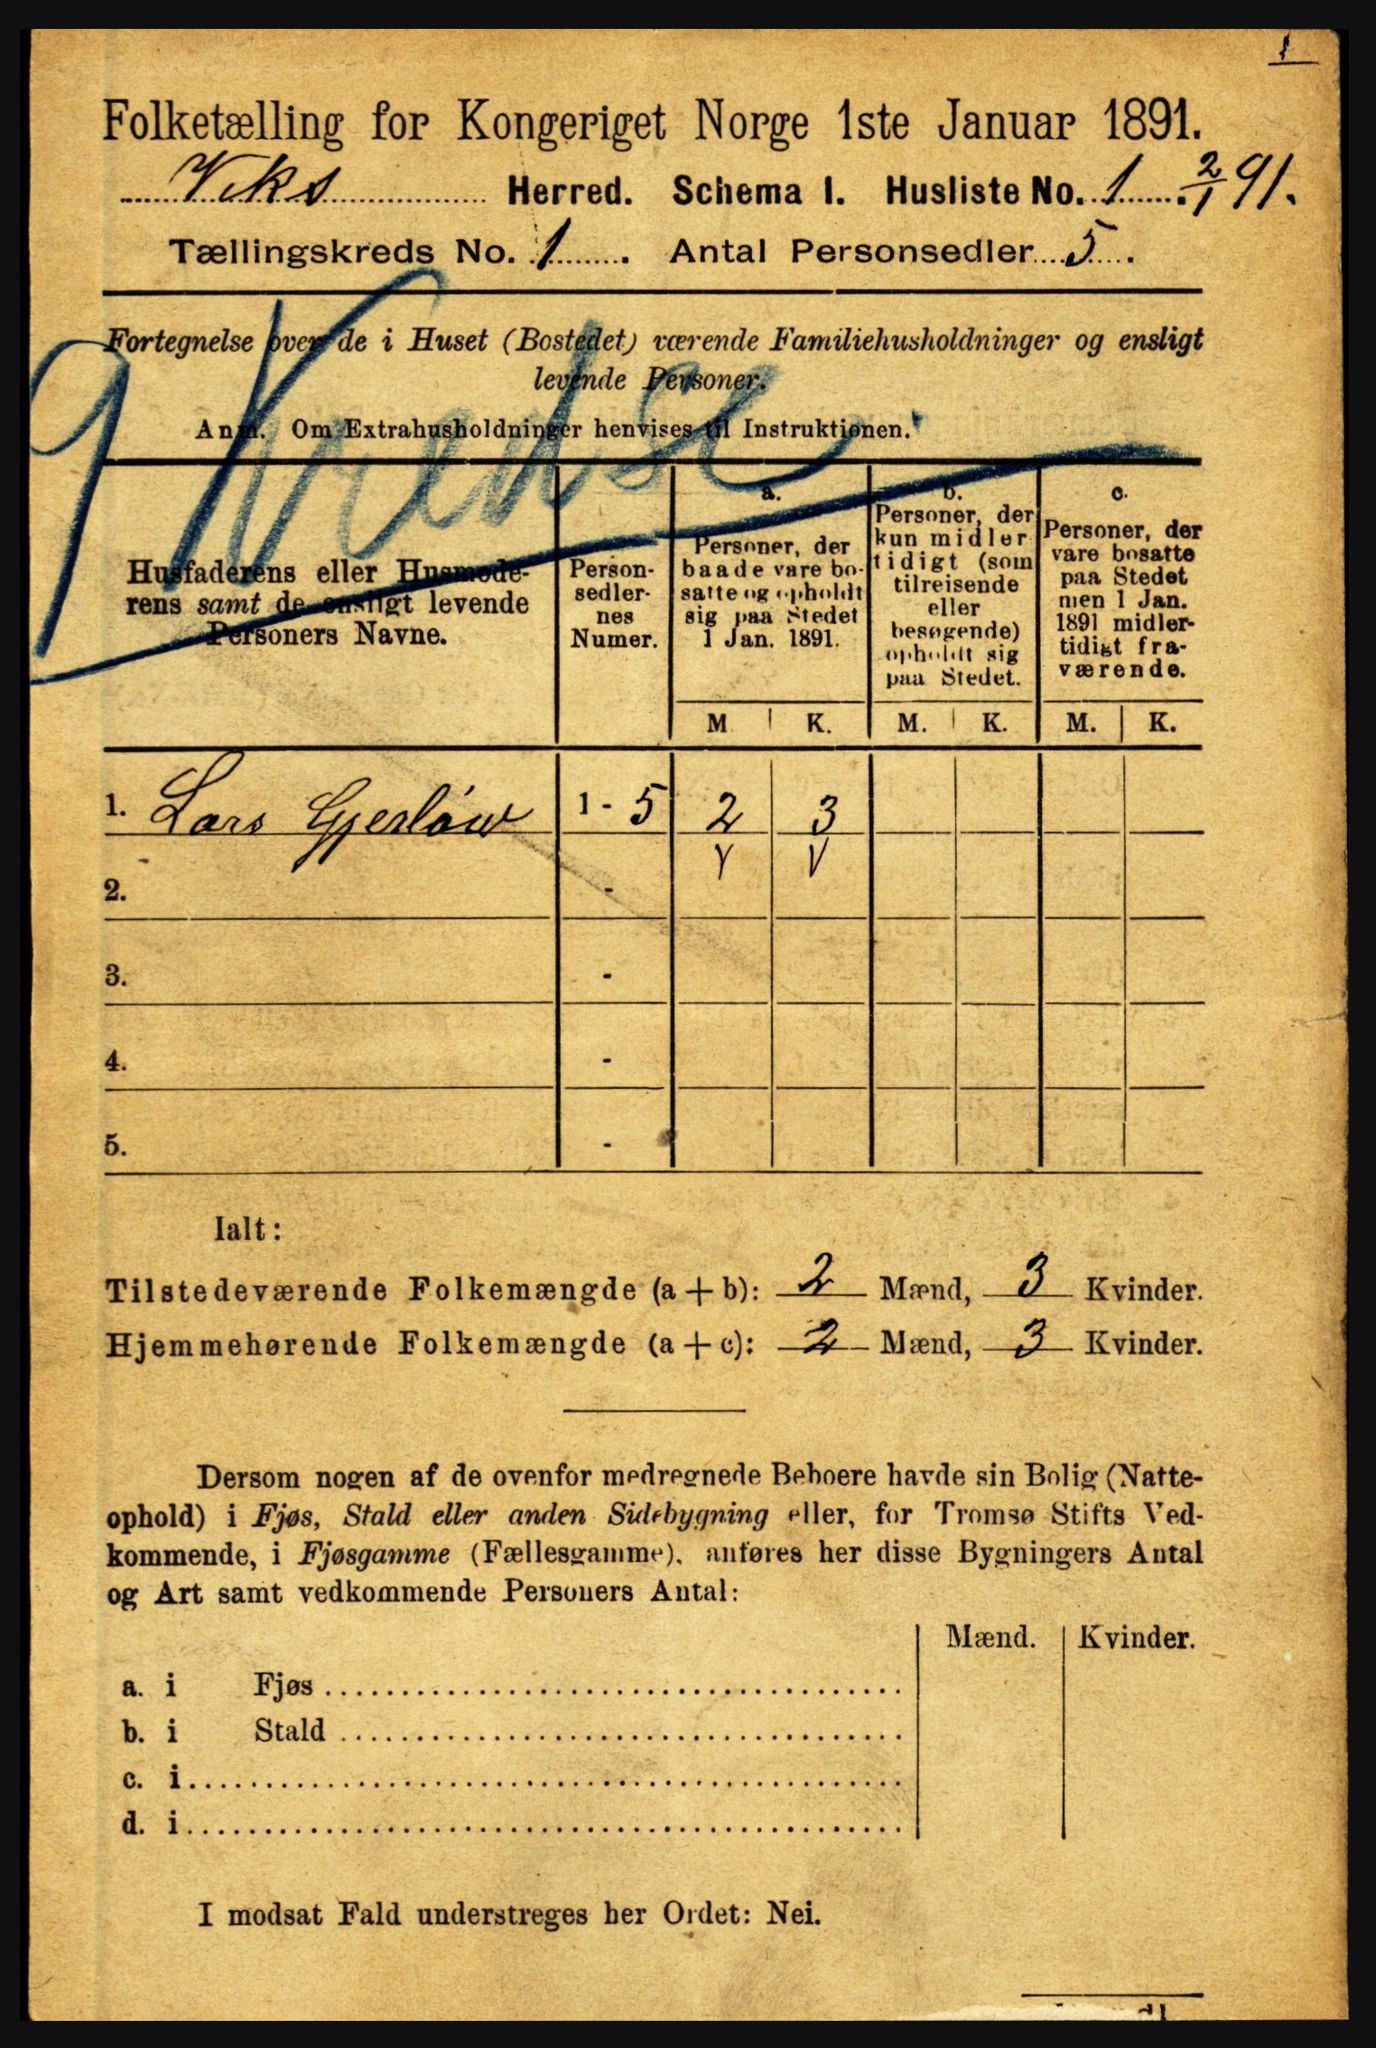 1
Folketælling for Kongeriget Norge 1ste Januar 1891.
Viks Herred. Schema 1. Husliste No. 1. 2/1 91.
Tællingskreds No. 1. Antal Personsedler 5.
9 Kredse
Fortegnelse over de i Huset (Bostedet) værende Familiehusholdninger og ensligt
levende Personer.
Anm. Om Extrahusholdninger henvises til Instruktionen.
Husfaderens eller Husmode-
rens samt de ensligt levende
Personers Navne.
Person-
sedler-
nes
Numer.
a.
Personer, der
baade vare bo-
satte og opholdt
sig paa Stedet
1 Jan. 1891.
b.
Personer, der
kun midler
tidigt (som
tilreisende
eller
besøgende)
opholdt sig
paa Stedet.
c.
Personer, der
vare bosatte
paa Stedet
men 1 Jan.
1891 midler-
tidigt fra-
værende.
M K. M. K. M. K.
1. Lars Gjerløw 1 - 5 2 3
2. -
3. -
4. -
5. -
Ialt:
Tilstedeværende Folkemængde (a + b): 2 Mænd, 3 Kvinder.
Hjemmehørende Folkemængde (a + c): 2 Mænd, 3 Kvinder.
Dersom nogen af de ovenfor medregnede Beboere havde sin Bolig (Natte-
ophold) i Fjøs, Stald eller anden Sidebygning eller, for Tromsø Stifts Ved-
kommende, i Fjøsgamme (Fællesgamme), anføres her disse Bygningers Antal
og Art samt vedkommende Personers Antal:
Mænd. Kvinder.
a. i Fjøs
b. i Stald
c. i
d. i
I modsat Fald understreges her Ordet: Nei.